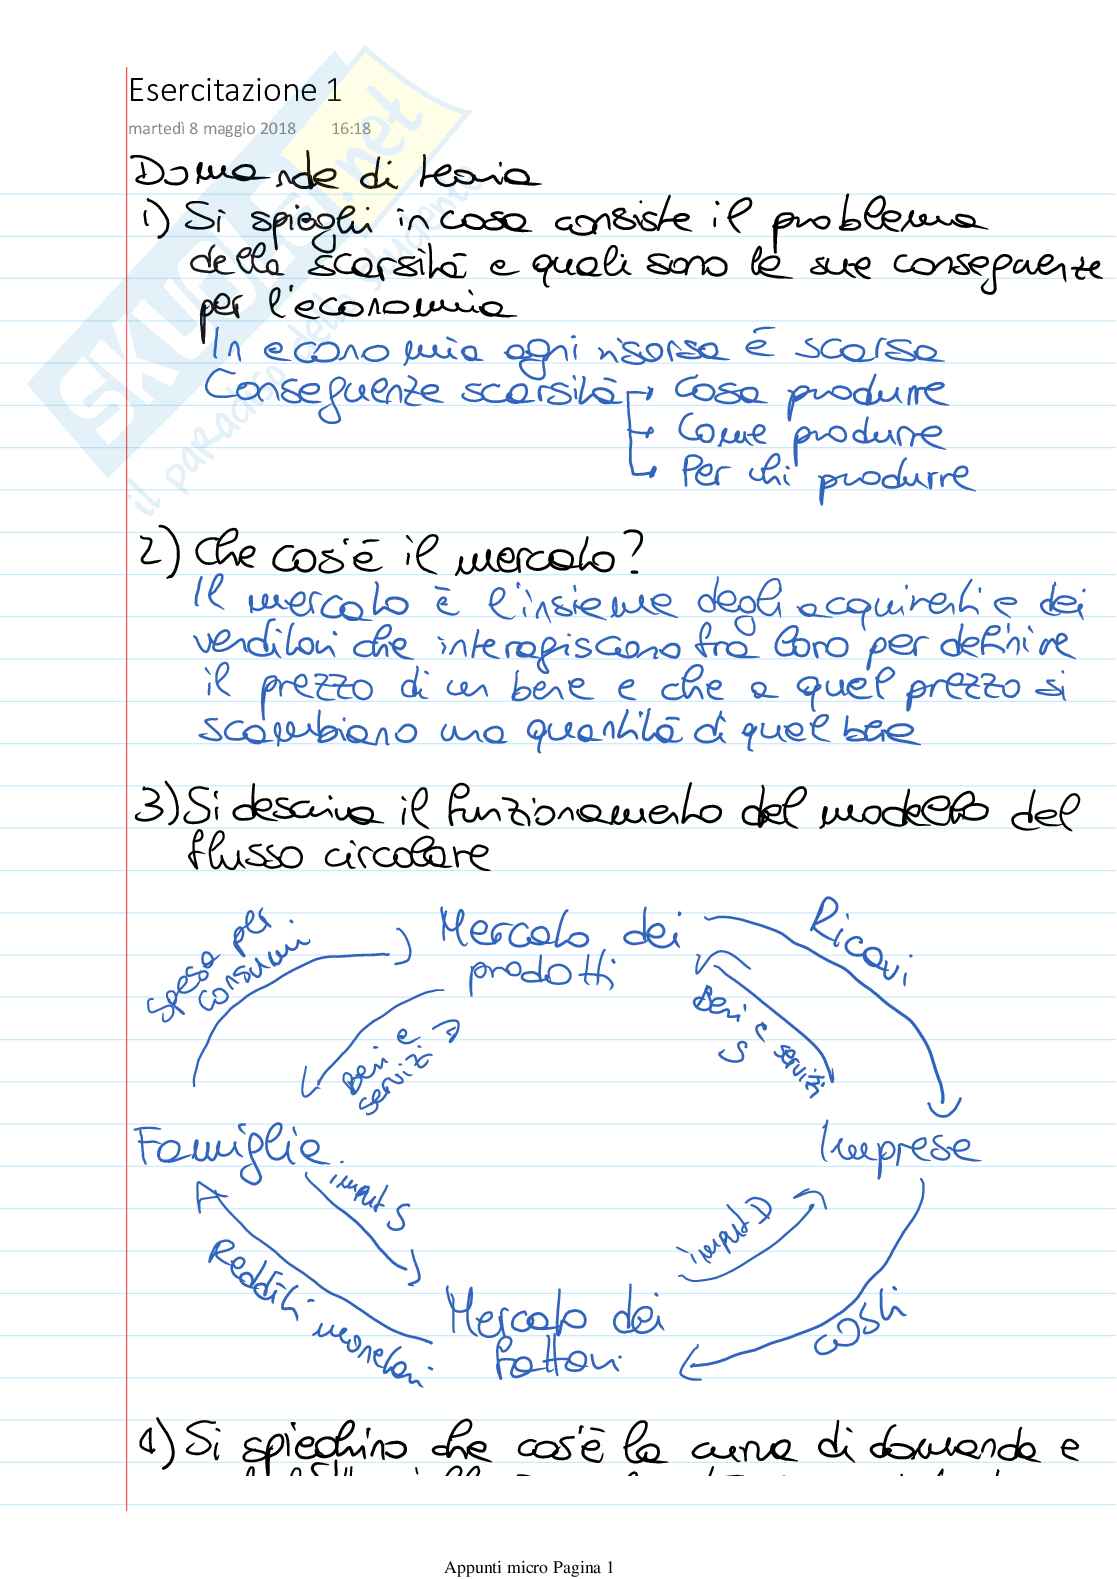 Esercitazione 1
martedì 8 maggio 2018 16:18
Domande di teoria
1) Si spieghi in cosa consiste il problema
della scarsità e quali sono le sue conseguenze
per l'economia
In economia ogni risorsa è scarsa
Conseguenze scarsità → Cosa produrre
→ Come produrre
→ Per chi produrre
2) Che cos'è il mercato?
Il mercato è l'insieme degli acquirenti e dei
venditori che interagiscono fra loro per definire
il prezzo di un bene e che a quel prezzo si
scambiano una quantità di quel bene
3) Si descriva il funzionamento del modello del
flusso circolare
Spesa per
consumi
Mercato dei
prodotti
Ricavi
Beni e
servizi D
Beni e servizi
S
Famiglie
Imprese
input S
input D
Redditi monetari
Mercato dei
fattori
costi
4) Si spieghino che cos'è la curva di domanda e
Appunti micro Pagina 1
SKUOLA.net
il paradiso dello studente